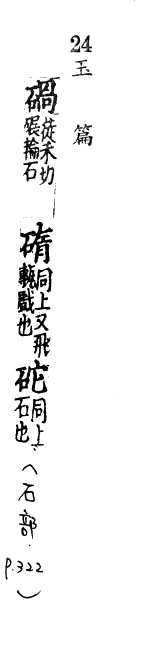 24
玉篇
碢徒禾切碾輪石
𥓬同上又飛甎戲也
砣同上石也（石部．p.322）